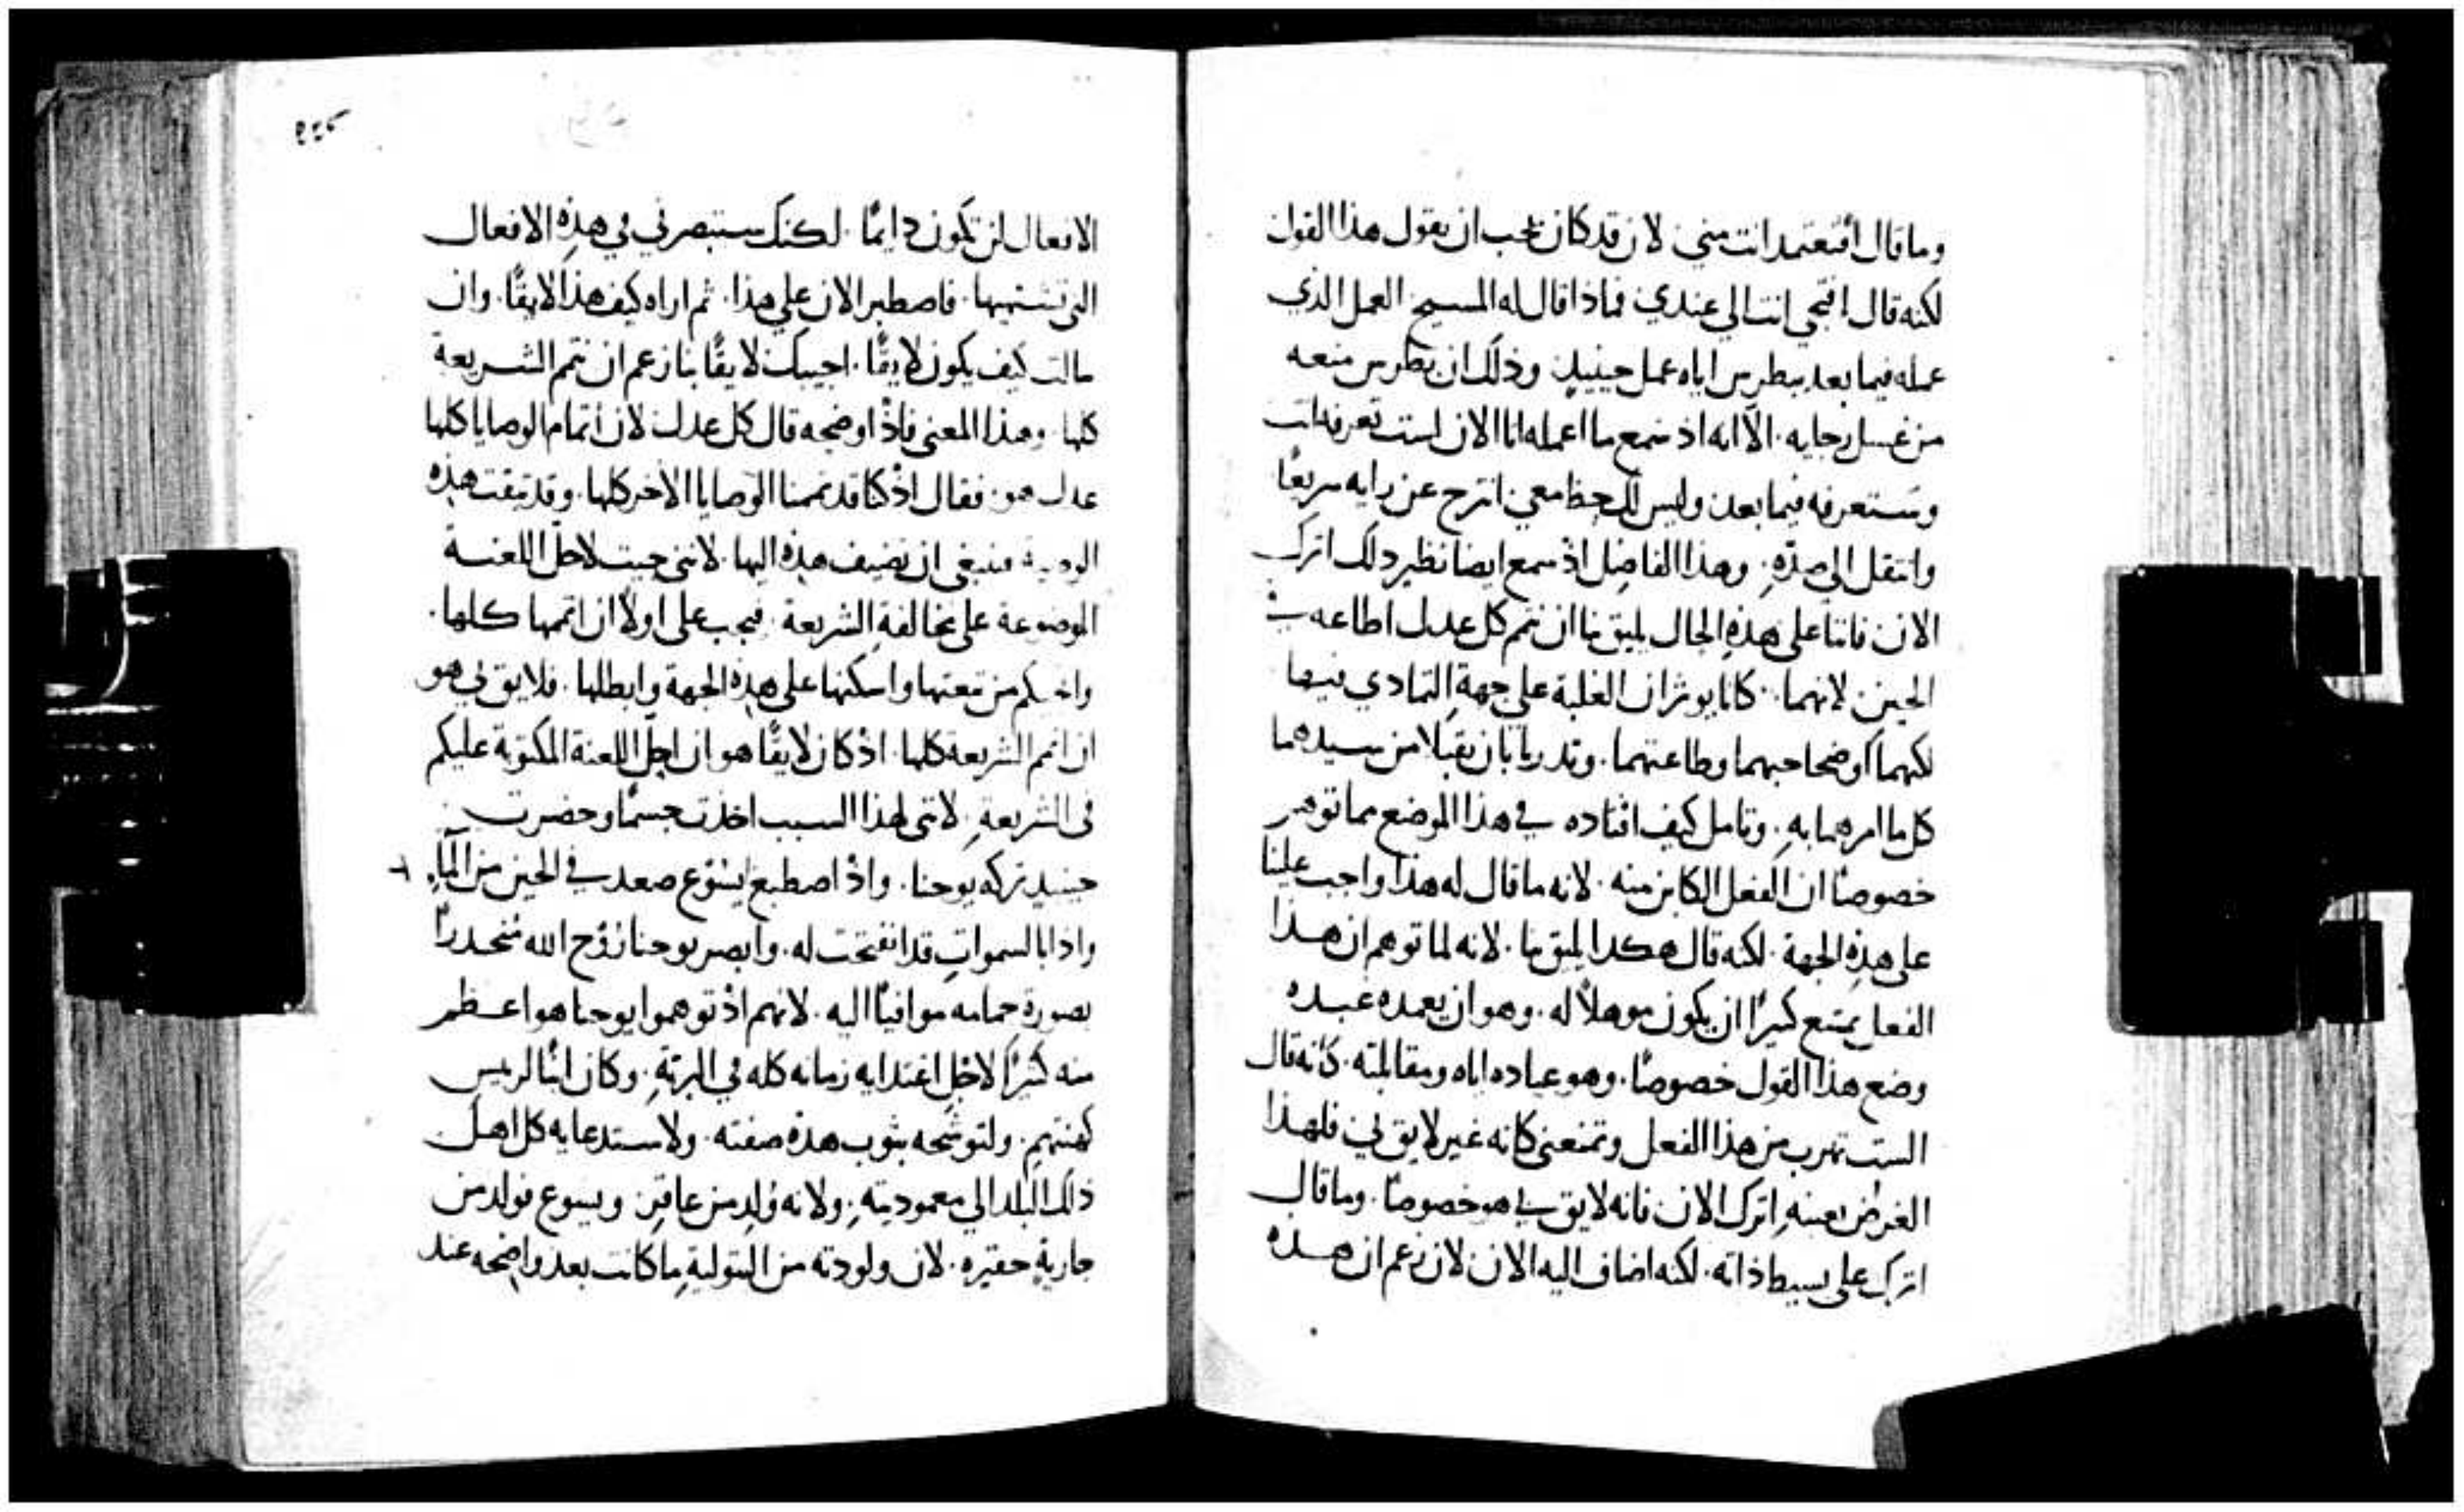 وما قال افتعتمد انت مني لان قد كان يجب ان يقول هذا القول
لكنه قال افتجي انت الي عندي فماذا قال له المسيح العمل الذي
عمله فيما بعد ببطرس اياه عمل حينيذٍ وذلك ان بطرس منعه
من غسل رجليه. الا انه اذ سمع ما اعمله انا الان لست تعرفه انت
وستعرفه فيما بعد وليس لك حظا معي انترح عن رايه سريعًا
وانتقل الي ضدّهِ. وهذا الفاضل اذ سمع ايضا نظير ذلك اترك
الان فاننا على هذهِ الحال يليق بنا ان نتم كل عدل اطاعه في
الحين لانهما. كانا يوثران الغلبة على جهةِ التمادي فيها
لكنهما اوضحا حبهما وطاعتهما. وتدربا بان يقبلا من سيدهما
كل ما امرهما بهِ. وتامل كيف اقتاده في هذا الموضع مما توهمر
خصوصًا ان الفعل الكاين منه. لانه ما قال له هذا واجب علينا
على هذهِ الجهة. لكنه قال هكذا يليق بنا. لانه لما توهم ان هـذا
الفعل يمتنع كثيرًا ان يكون موهلاً له. وهو ان يعمده عبـده
وضع هذا القول خصوصًا. وهو عياده اياه ومقابلته. كانه قال
الست تهرب من هذا الفعل وتمنعني كانه غير لايق لي فلهذا
الغرض بعينهِ اترك الان فانه لايق بي هو خصوصًا. وما قال
اترك على بسيط ذاته. لكنه اضاف اليه الان لان زعم ان هـذه
٢٤٤
الافعال لن تكون دايمًا. لكنك ستبصرني في هذهِ الافعال
التي تشتهيها. فاصطبر الان علي هذا. ثم اراه كيف هذا لايقًا. وان
سالت كيف يكون لايقًا. اجيبك لايقًا بنا زعم ان نتم الشـريعة
كلها. وهذا المعني فاذْ اوضحه قال كل عدل لان اتمام الوصايا كلها
عدل هو. فقال اذْ كنا قد تممنا الوصايا الاخر كلها. وقد بقيت هذه
الوصية فينبغي ان نضيف هذه اليها. لانني جيت لاحلّ اللعنـة
الموضوعة على مخالفةِ الشريعة. فيجب علي اولاً ان اتممها كـلها.
من تبعتها واسكنها على هذهِ الجهة وابطلها. فلايق لي هو
ان اتمم الشريعة كلها. اذْ كان لايقًا هو ان احلّ اللعنة المكتوبة عليكم
في الشريعةِ. لانني لهذا السبب اخذت جسمًا وحضرت
حينيذٍ تركه يوحنا. واذْ اصطبغ ايسُوع صعد في الحين من المآءِ.
واذا بالسمواتِ قد انفتحت له. وابصر يوحنا رُوح الله مُنحدرًا
بصورة حمامه موافيًا اليه. لانهم اذْ توهموا يوحنا هو اعـظم
منه كثيرًا لاجل اغتذايه زمانه كله في البريّةِ. وكان ابنًا لرييس
كهنتهم. ولتوشّحه بثوب هذه صفته. ولاستدعايه كل اهل
ذلك البلد الي معموديتهِ. ولانه وُلد من عاقرٍ. ويسوع فولد من
جاريةٍ حقيره. لان ولودته من البتوليةِ ما كانت بعد واضحه عند